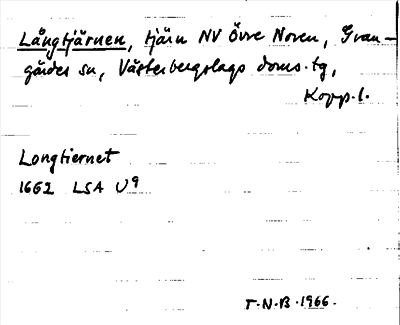 Långtjärnen, tjärn NV Övre Noren, Gran-
gärdes sn, Västerbergslags doms. tg,
Kopp. l.
Longtiernet
1662 LSA U9
T.N.B. 1966.